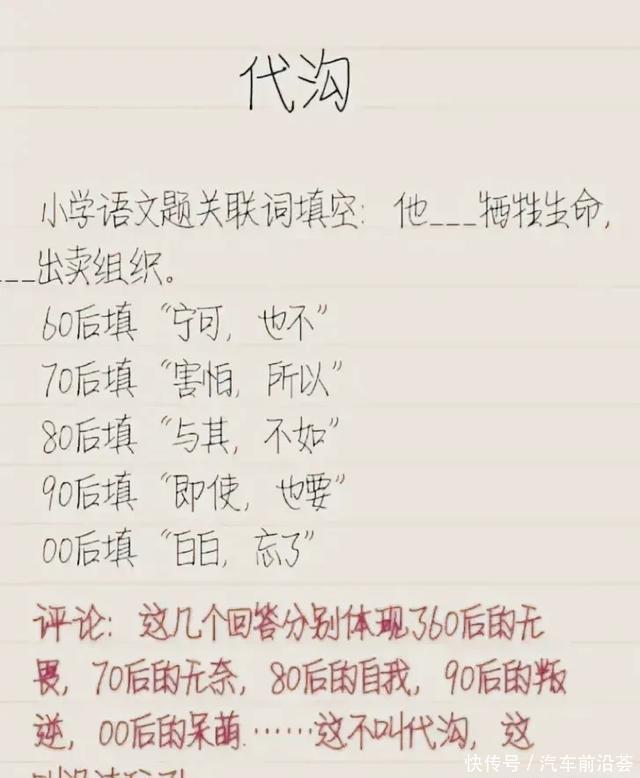 代沟
小学语文题关联词填空：他___牺牲生命，
___出卖组织。
60后填“宁可，也不”
70后填“害怕，所以”
80后填“与其，不如”
90后填“即使，也要”
00后填“白白，忘了”
评论：这几个回答分别体现了60后的无
畏，70后的无奈，80后的自我，90后的叛
逆，00后的呆萌……这不叫代沟，这
快传号/汽车前沿荟